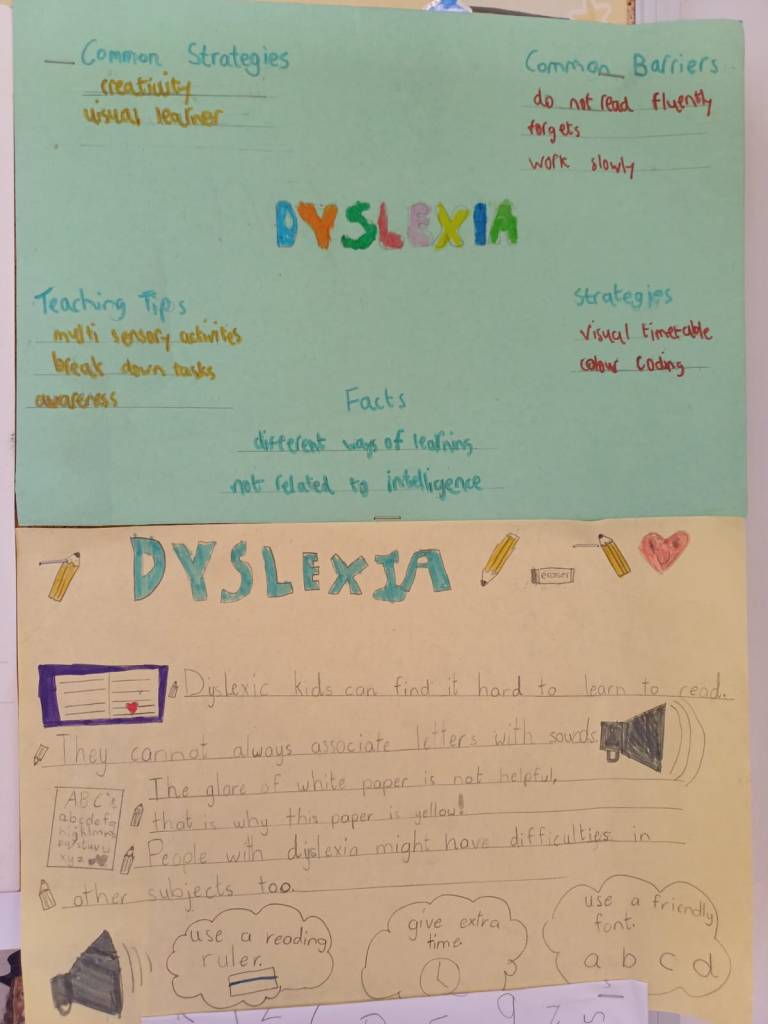 Common Strategies
creativity
visual learner
Common Barriers
do not read fluently
forgets
work slowly
DYSLEXIA
Teaching Tips
multi sensory activities
break down tasks
awareness
Strategies
visual timetable
colour coding
Facts
different ways of learning
not related to intelligence
DYSLEXIA
eraser
Dyslexic kids can find it hard to learn to read.
They cannot always associate letters with sounds.
The glare of white paper is not helpful,
that is why this paper is yellow!
ABC's
abcdefg
People with dyslexia might have difficulties in
other subjects too.
use a reading
ruler.
give extra
time.
use a friendly
font.
a b c d